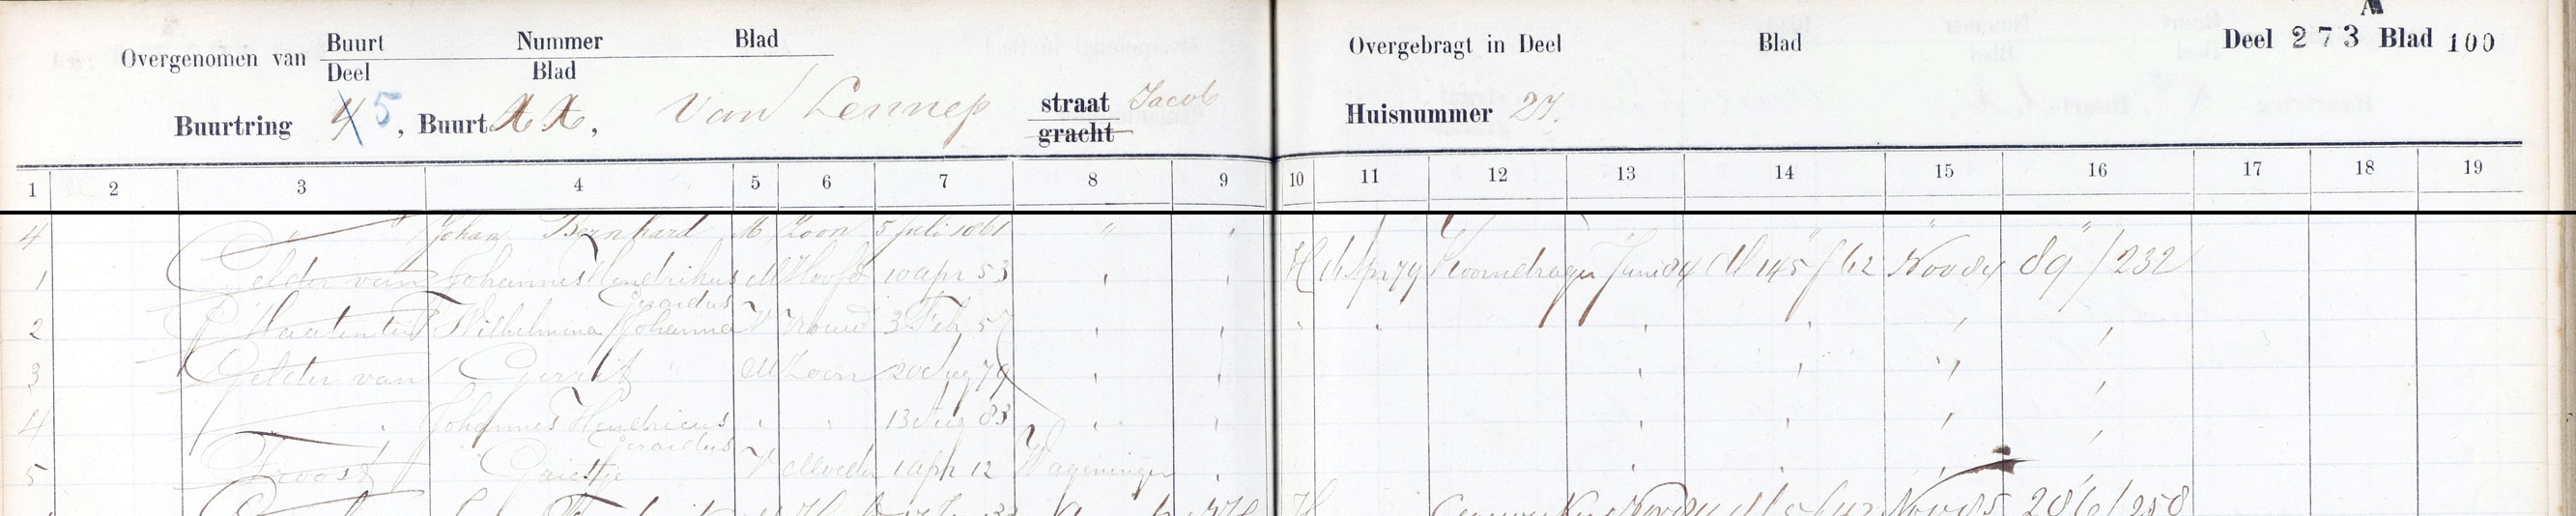 Overgenomen van Buurt Nummer Blad
Deel Blad
Buurtring 4 5, Buurt XX, Van Lennep straat Jacob
gracht
Overgebragt in Deel Blad Deel 273 Blad 100
Huisnummer 27.
1 2 3 4 5 6 7 8 9 10 11 12 13 14 15 16 17 18 19
4 " Johan Bernhard M Zoon 5 Juli 1861 " "
1 Gelder van Johannes Hendrikus Gerardus M Hoofd 10 apr 53 " " H Apr 79 Koorndrager Juni 84 M 145 f 62 Nov 84 89 / 232
2 Wilhelmina Johanna V Vrouw 3 Feb 57 " " " " " " " "
3 Gelder van Gerrit " M Zoon 20 Aug 79 " " " " " "
4 " Johannes Hendricus Gerardus " " 13 Aug 83 " " " " "
5 Troost Grietje V Moeder 1 apr 12 Wageningen " " " "
H Nov 85 286 / 258